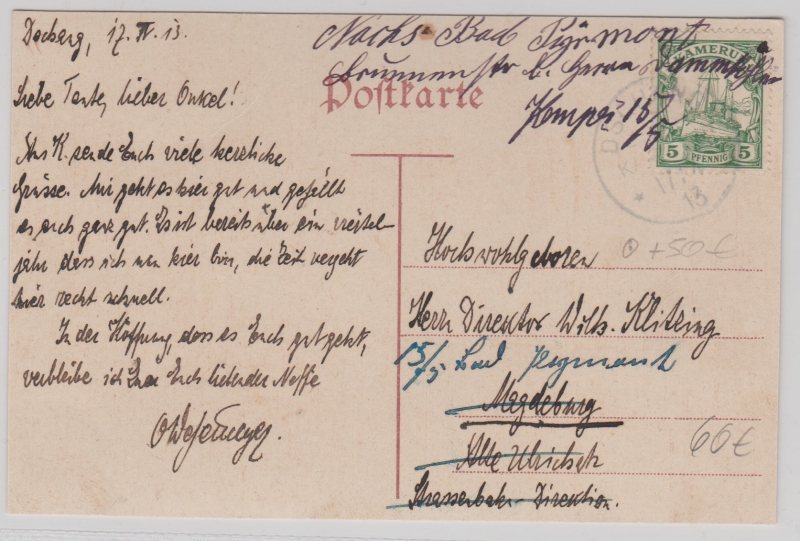 Dschang, 17. IV. 13.
Liebe Tante, lieber Onkel!
Aus K. sende Euch viele herzliche
Grüsse. Mir geht es hier gut und gefällt
es auch ganz gut. Es ist bereits über ein viertel-
jahr dass ich nun hier bin, die Zeit vergeht
hier recht schnell.
In der Hoffnung, dass es Euch gut geht,
verbleibe ich Euch liebender Neffe
Nachs. Bad Pyrmont
Brunnenstr b. Herrn
Postkarte
15/5
KAMERUN
5 PFENNIG 5
17
13
Hochwohlgeboren
+50€
Herrn Direktor Wilh. Klitzing
15/5 Bad Pyrmont
Magdeburg
60€
Alte Ulrichstr
Strassenbahn-Direktion.